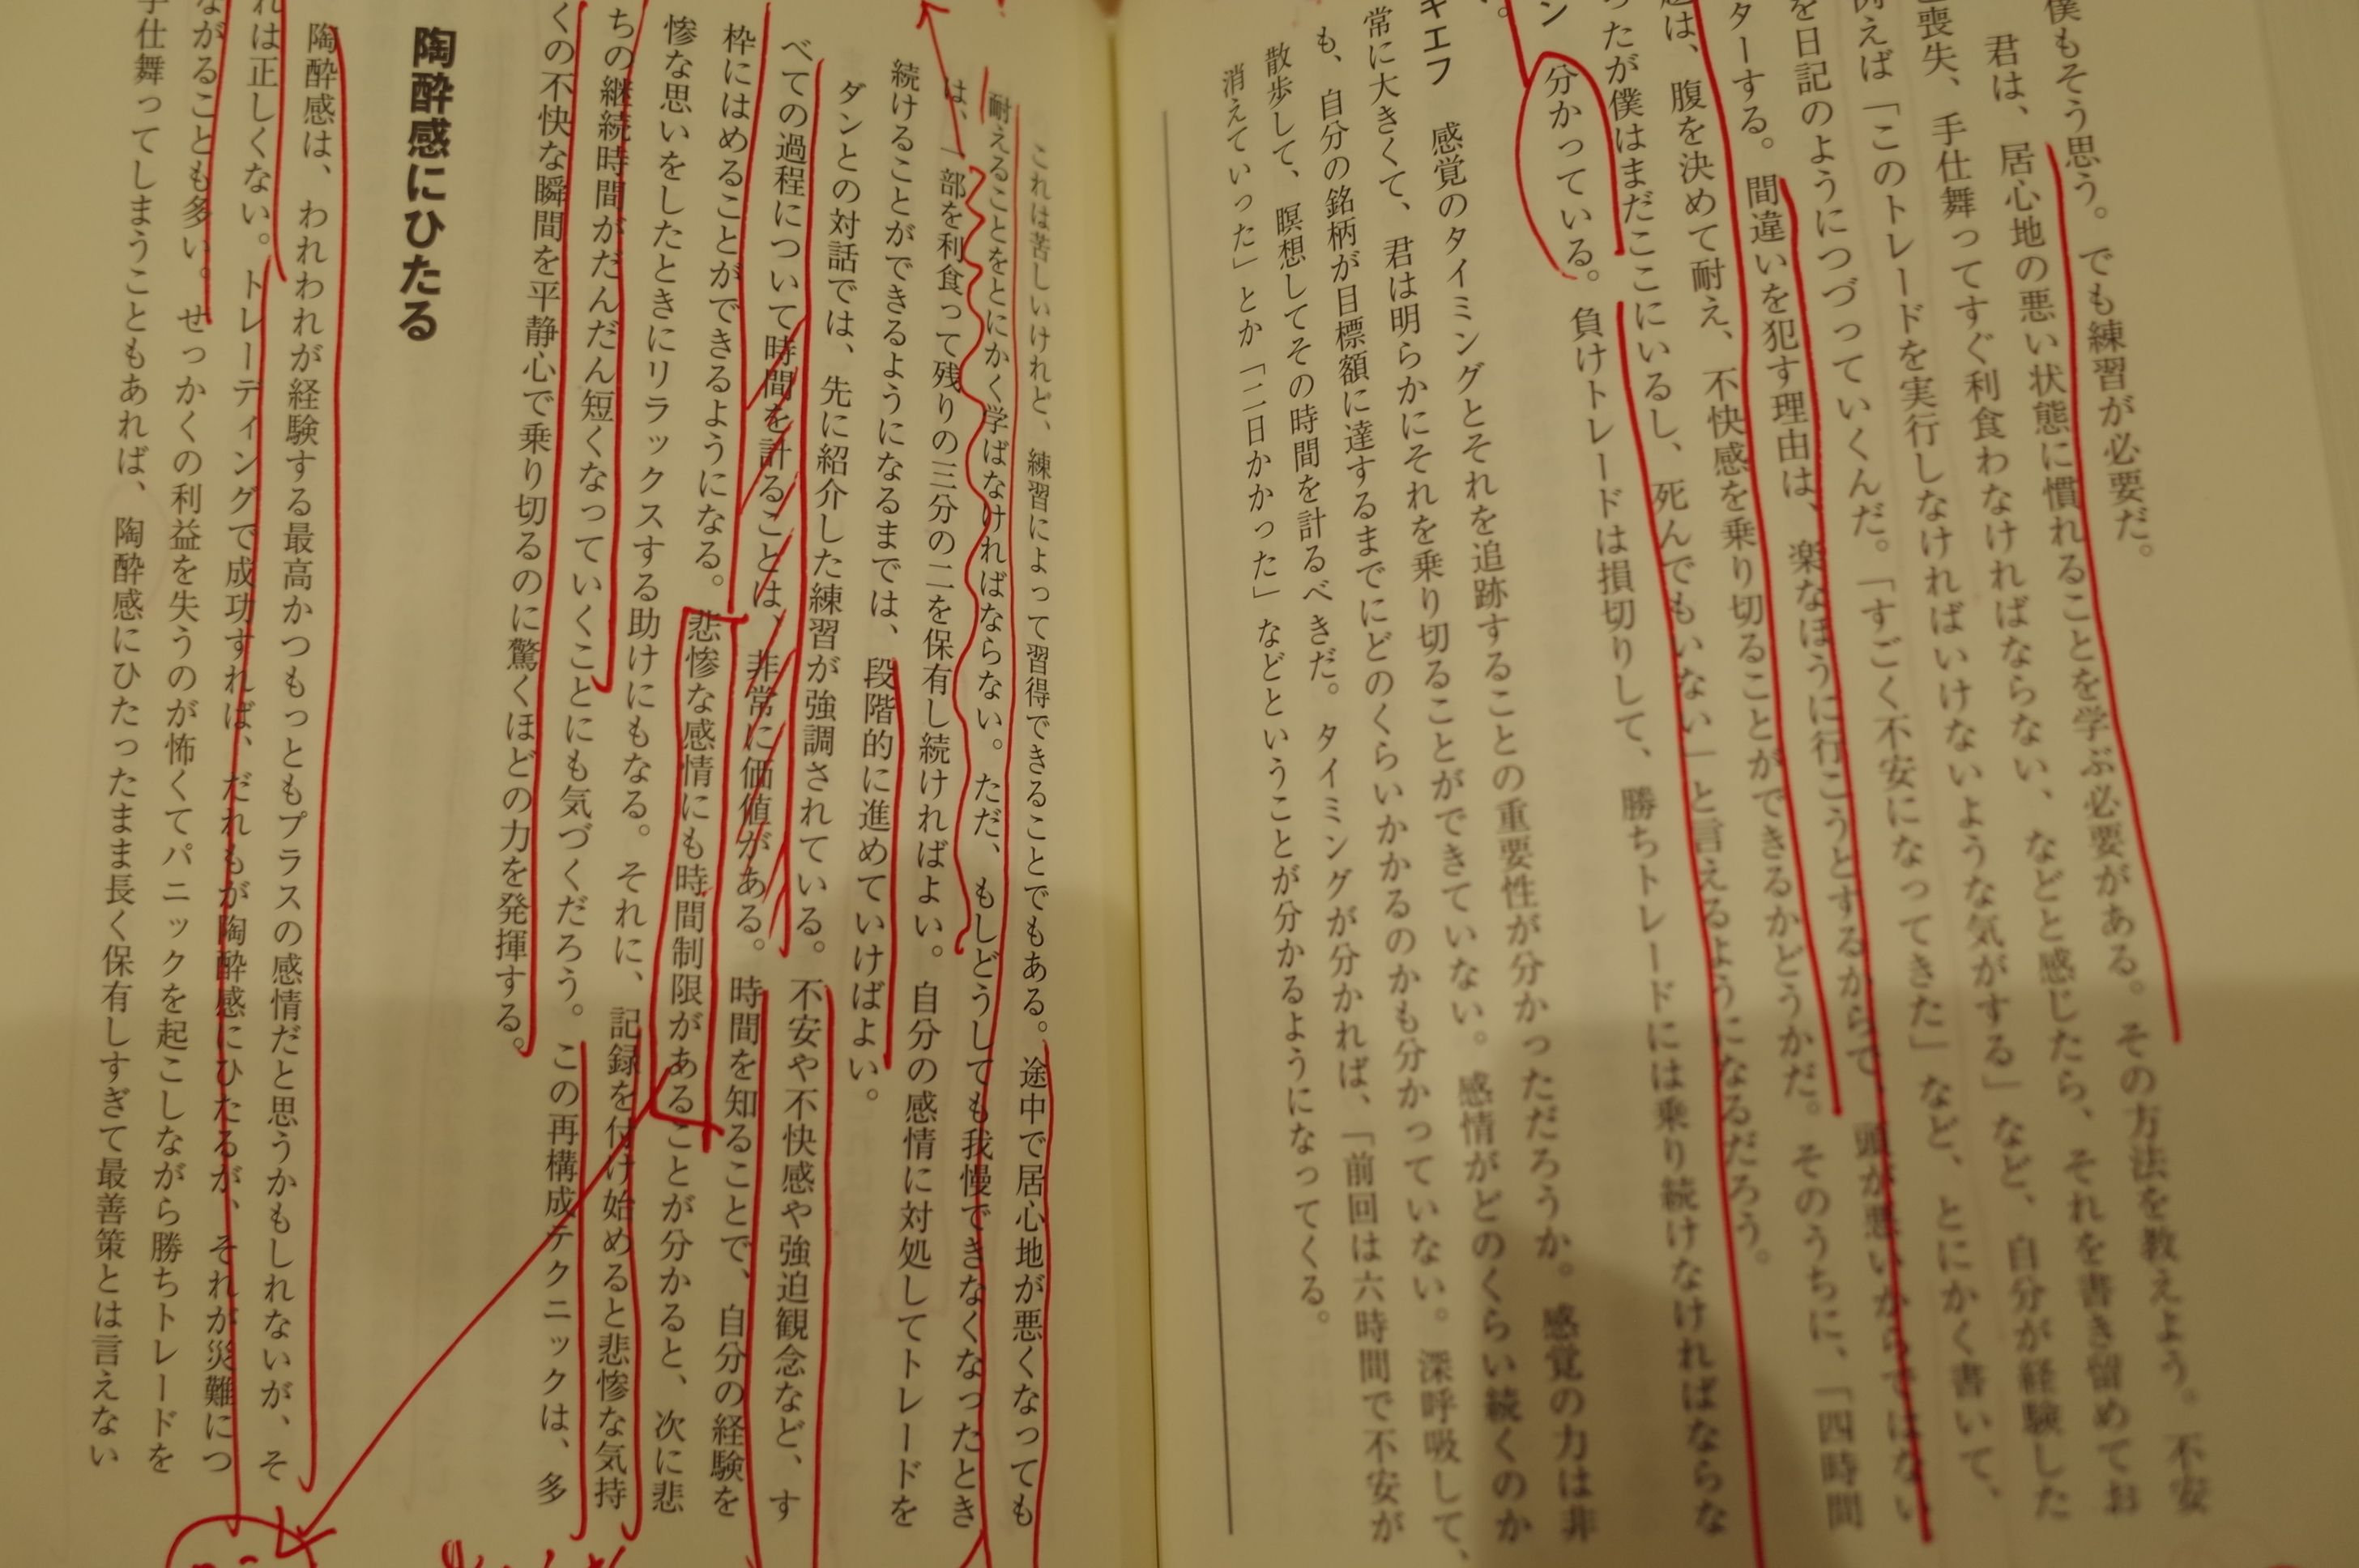 僕もそう思う。でも練習が必要だ。
君は、居心地の悪い状態に慣れることを学ぶ必要がある。その方法を教えよう。不安
喪失、手仕舞ってすぐ利食わなければならない、などと感じたら、それを書き留めてお
例えば「このトレードを実行しなければいけないような気がする」など、自分が経験した
を日記のようにつづっていくんだ。「すごく不安になってきた」など、とにかく書いて、
ターする。間違いを犯す理由は、楽なほうに行こうとするからで、頭が悪いからではない
は、腹を決めて耐え、不快感を乗り切ることができるかどうかだ。そのうちに、「四時間
ったが僕はまだここにいるし、死んでもいない」と言えるようになるだろう。
ン 分かっている。負けトレードは損切りして、勝ちトレードには乗り続けなければならな
い。
キエフ 感覚のタイミングとそれを追跡することの重要性が分かっただろうか。感覚の力は非
常に大きくて、君は明らかにそれを乗り切ることができていない。感情がどのくらい続くのか
も、自分の銘柄が目標額に達するまでにどのくらいかかるのかも分かっていない。深呼吸して、
散歩して、瞑想してその時間を計るべきだ。タイミングが分かれば、「前回は六時間で不安が
消えていった」とか「二日かかった」などということが分かるようになってくる。
これは苦しいけれど、練習によって習得できることでもある。途中で居心地が悪くなっても
耐えることをとにかく学ばなければならない。ただ、もしどうしても我慢できなくなったとき
は、一部を利食って残りの三分の二を保有し続ければよい。自分の感情に対処してトレードを
続けることができるようになるまでは、段階的に進めていけばよい。
ダンとの対話では、先に紹介した練習が強調されている。不安や不快感や強迫観念など、す
べての過程について時間を計ることは、非常に価値がある。時間を知ることで、自分の経験を
枠にはめることができるようになる。悲惨な感情にも時間制限があることが分かると、次に悲
惨な思いをしたときにリラックスする助けにもなる。それに、記録を付け始めると悲惨な気持
ちの継続時間がだんだん短くなっていくことにも気づくだろう。この再構成テクニックは、多
くの不快な瞬間を平静心で乗り切るのに驚くほどの力を発揮する。
陶酔感にひたる
陶酔感は、われわれが経験する最高かつもっともプラスの感情だと思うかもしれないが、そ
れは正しくない。トレーティングで成功すれば、だれもが陶酔感にひたるが、それが災難につ
ながることも多い。せっかくの利益を失うのが怖くてパニックを起こしながら勝ちトレードを
手仕舞ってしまうこともあれば、陶酔感にひたったまま長く保有しすぎて最善策とは言えない